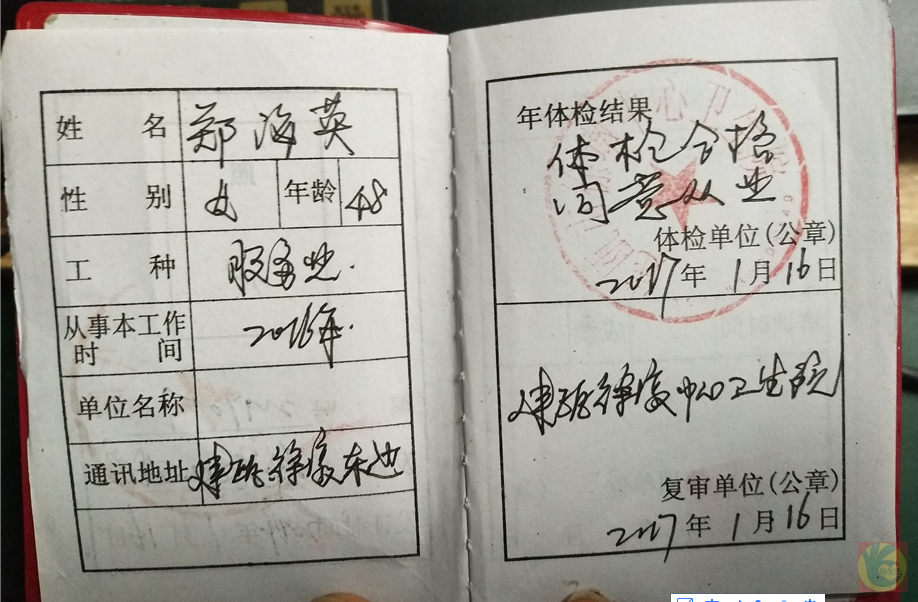 姓 名 郑海英
性 别 女 年龄 48
工 种 服务业.
从事本工作
时 间 2016年.
单位名称
通讯地址 建瓯徐墩东边
年体检结果
体检合格
同意从业
体检单位(公章)
2017年 1月16日
建瓯徐墩中心卫生院
复审单位(公章)
2017年 1月16日